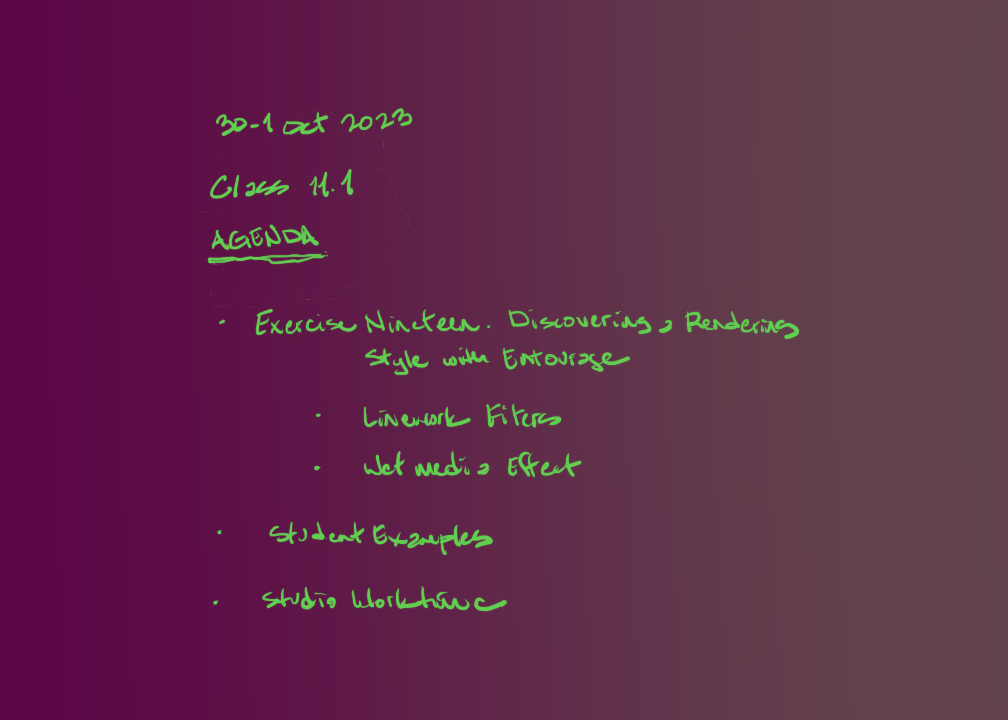 30-1 Oct 2023
Class 11.1
AGENDA
· Exercise Nineteen. Discovering a Rendering
Style with Entourage
· Linework Filters
· Wet media Effect
· Student Examples
· Studio Worktime